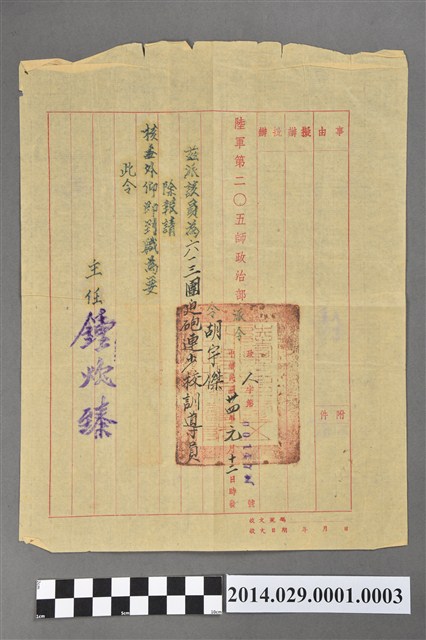 事由擬辦批辦
附件
陸軍第二〇五師政治部派令
政人字第
卅四年元月十二日時發
號
令胡宇傑
茲派該員為六一三團迫砲連少校訓導員
除報請
核委外仰即到職為要
此令
主任
年 月 日
1cm
5cm
10cm
2014.029.0001.0003